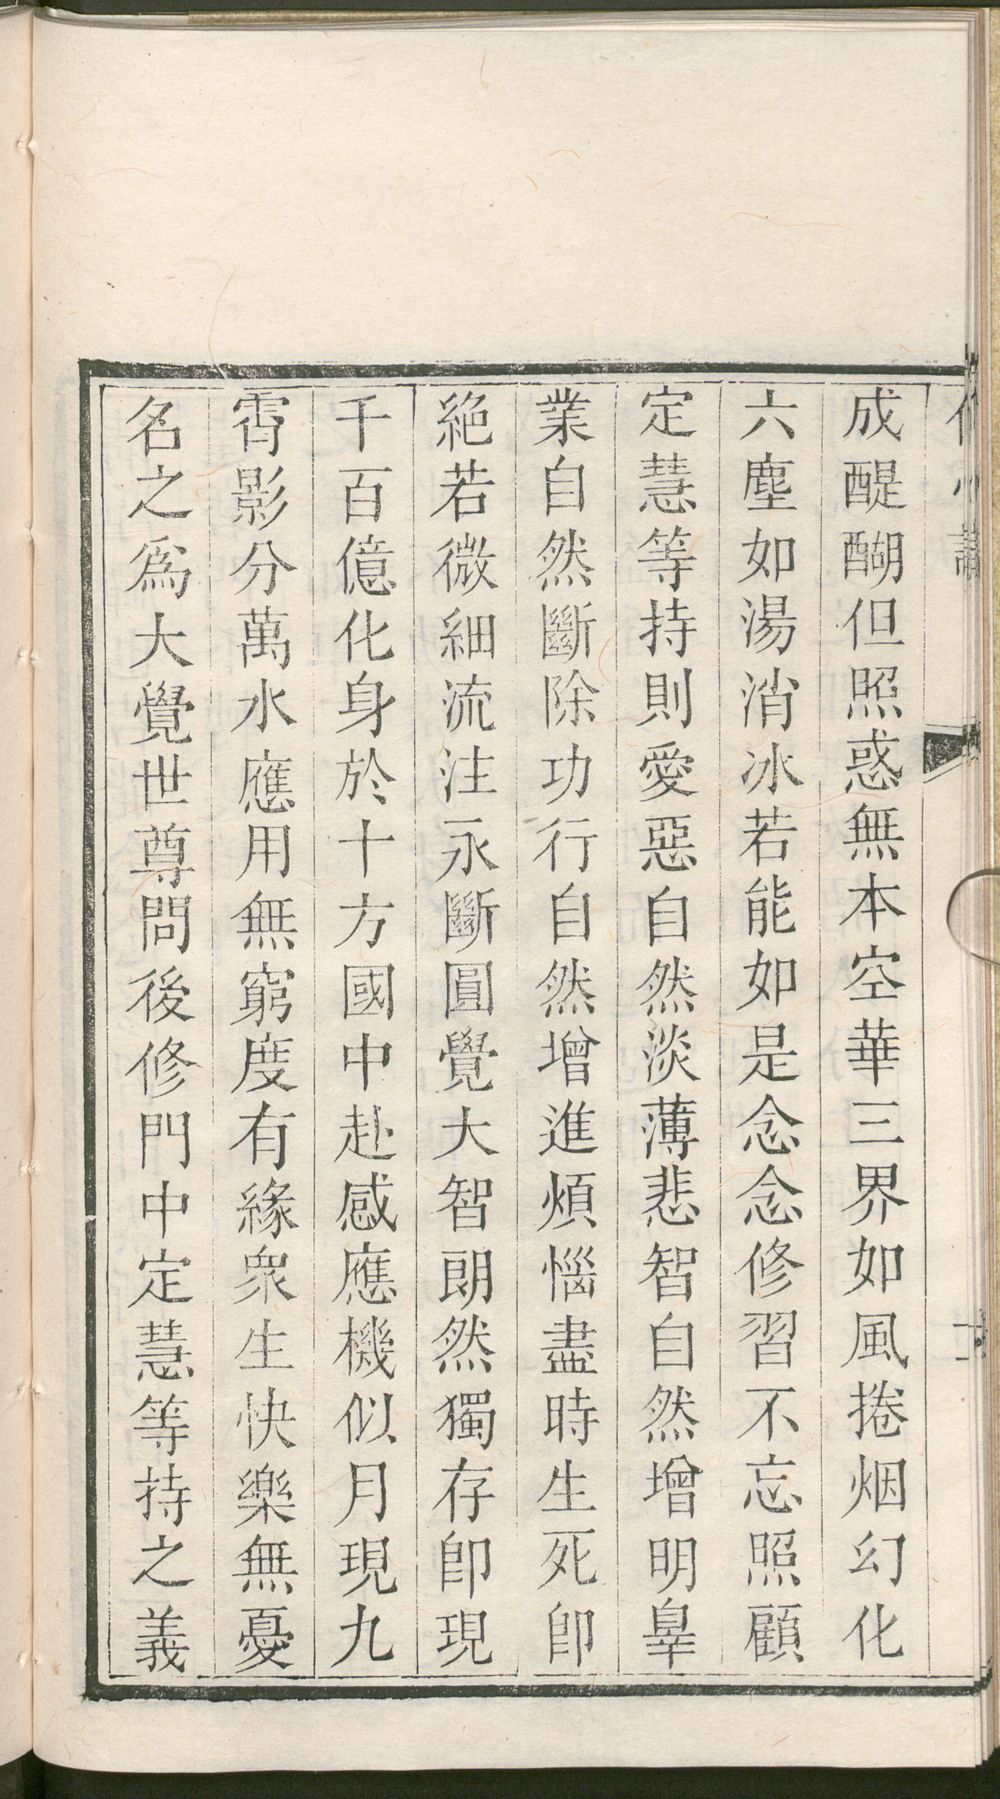 成醍醐但照惑無本空華三界如風捲烟幻化
六塵如湯消冰若能如是念念修習不忘照顧
定慧等持則愛惡自然淡薄悲智自然增明辠
業自然斷除功行自然增進煩惱盡時生死即
絶若微細流注永斷圓覺大智朗然獨存卽現
千百億化身於十方國中赴感應機似月現九
霄影分萬水應用無窮度有緣衆生快樂無憂
名之爲大覺世尊問後修門中定慧等持之義